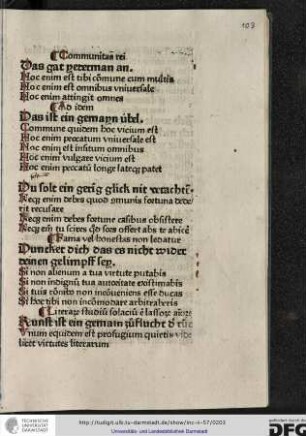 103
¶Communitas rei
Das gat yederman an.
Hoc enim est tibi cōmune cum multis
Hoc enim est omnibus vniuersale
Hoc enim attingit omnes
¶Ad idem
Das ist ein gemayn übel.
Commune quidem hoc vicium est
Hoc enim peccatum vniuersale est
Hoc enim est insitum omnibus
Hoc enim vulgare vicium est
Hoc enim peccatū longe lateq; patet
Du solt ein gerig glick nit verachtē.
Neq; enim debes quod cōmunis fortuna dede
rit recusare
Neq; enim debes fortune casibus obsistere
Neq; em̄ tu scires qd̄ sors offert abs te abiicē
¶Fama vel honestas non ledatur
Duncket dich das es nicht wider
deinen gelimpff sey.
Si non alienum a tua virtute putabis
Si non indignū tua autoritate existimabis
Si tuis rōnibus non inconueniens esse ducas
Si hoc tibi non incōmodare arbitraberis
¶Literarum studiū solaciū ē lassoꝝ aīoꝝ
Kunst ist ein gemain zūflucht d
num equidem est profugium quietis vide
licet virtutes literarum
TECHNISCHE
UNIVERSITÄT
DARMSTADT
http://tudigit.ulb.tu-darmstadt.de/show/inc-ii-57/0203
Universitäts- und Landesbibliothek Darmstadt
DFG